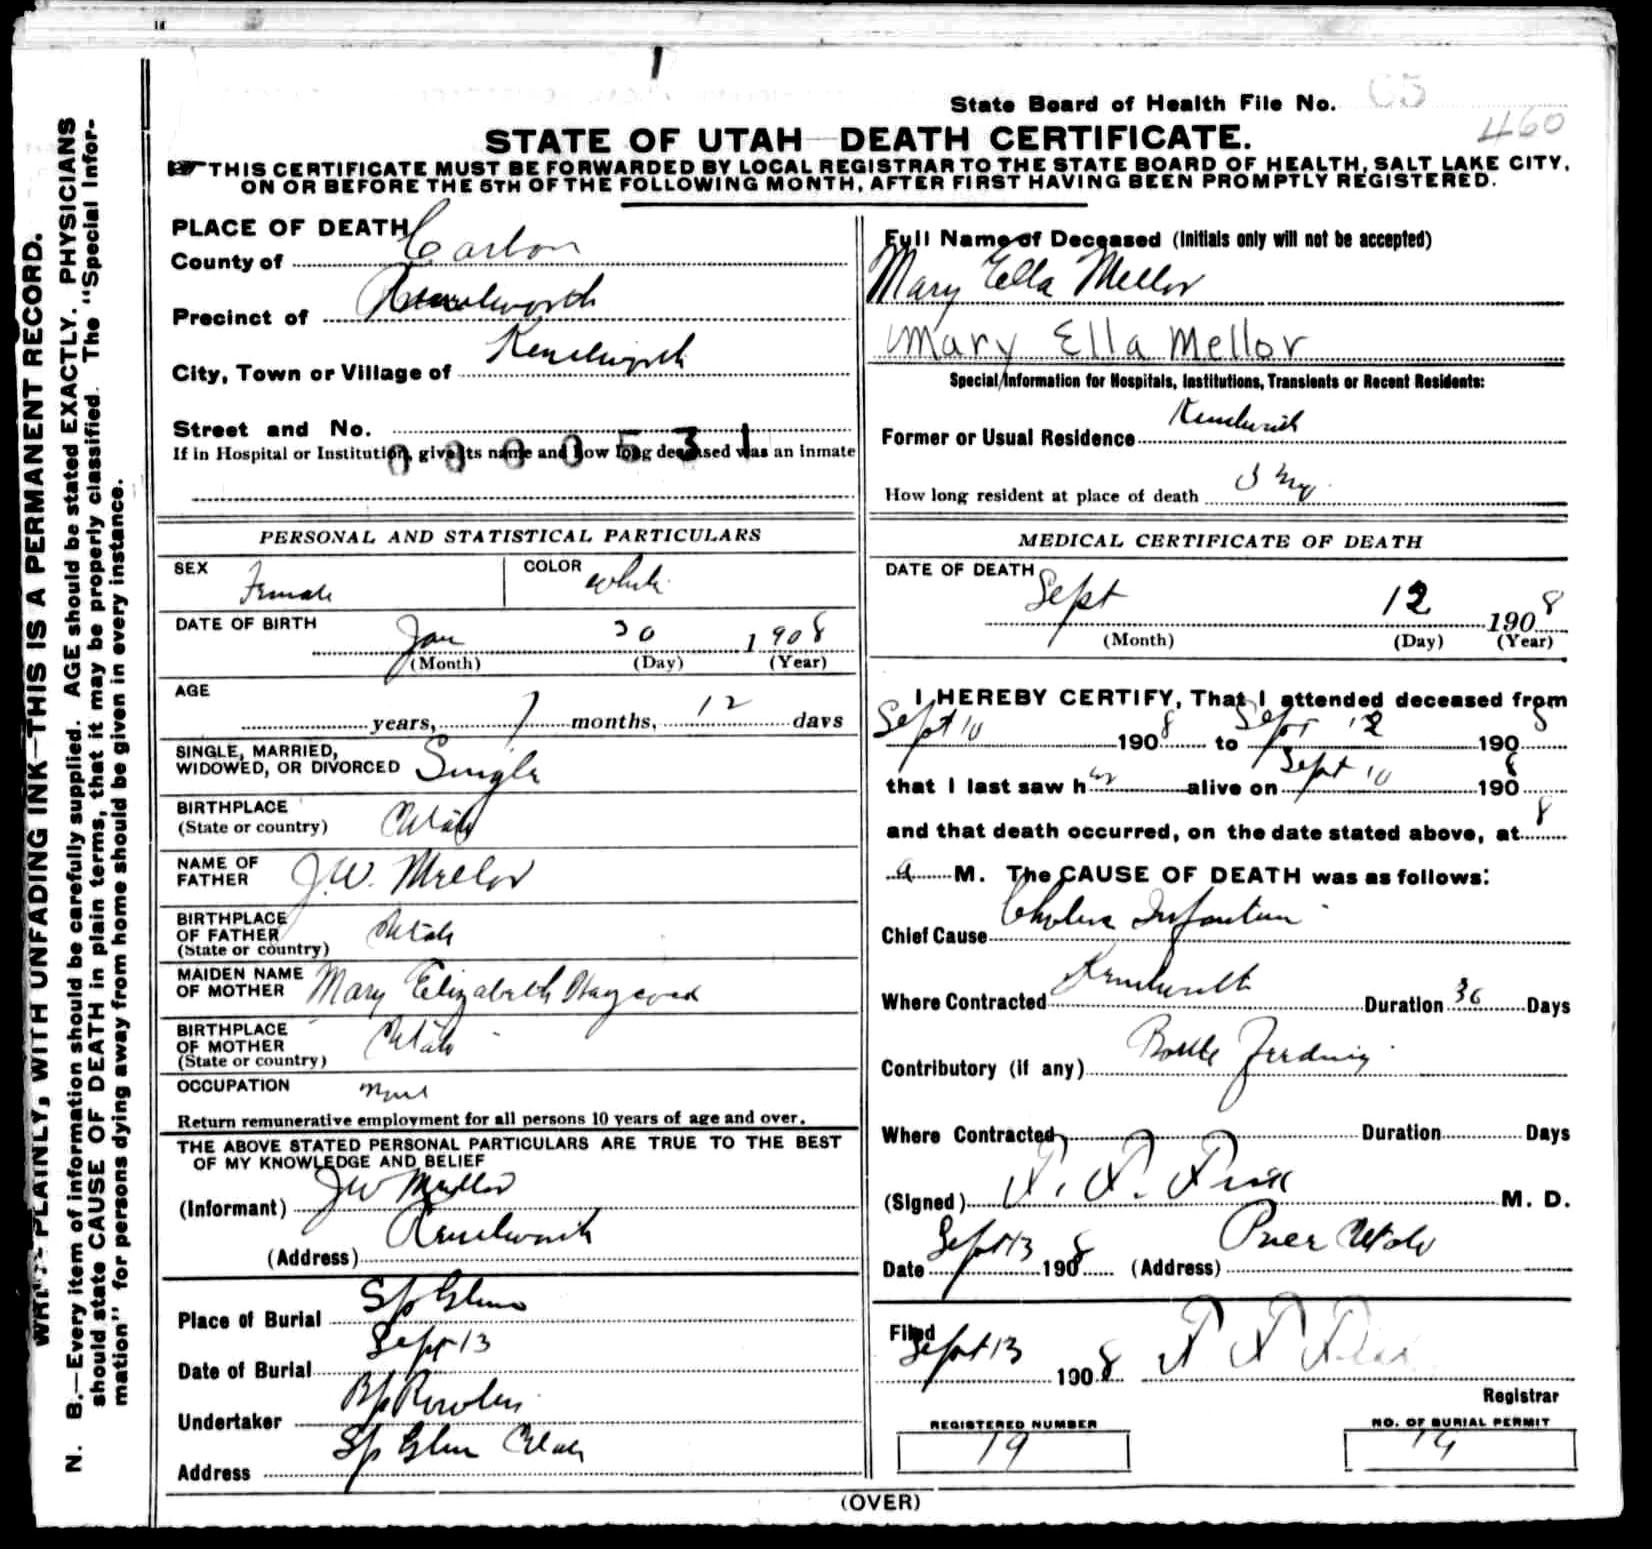 State Board of Health File No. 65
460
STATE OF UTAH—DEATH CERTIFICATE.
THIS CERTIFICATE MUST BE FORWARDED BY LOCAL REGISTRAR TO THE STATE BOARD OF HEALTH, SALT LAKE CITY,
ON OR BEFORE THE 5TH OF THE FOLLOWING MONTH, AFTER FIRST HAVING BEEN PROMPTLY REGISTERED.
WRITE PLAINLY, WITH UNFADING INK—THIS IS A PERMANENT RECORD.
N. B.—Every item of information should be carefully supplied. AGE should be stated EXACTLY. PHYSICIANS
should state CAUSE OF DEATH in plain terms, that it may be properly classified. The "Special Infor-
mation" for persons dying away from home should be given in every instance.
PLACE OF DEATH
County of Carbon
Precinct of Kenilworth
City, Town or Village of Kenilworth
Street and No.
If in Hospital or Institution, give its name and how long deceased was an inmate
0000531
PERSONAL AND STATISTICAL PARTICULARS
SEX Female COLOR White
DATE OF BIRTH Jan 30 1908
(Month) (Day) (Year)
AGE
years, 7 months, 12 days
SINGLE, MARRIED,
WIDOWED, OR DIVORCED Single
BIRTHPLACE
(State or country) Utah
NAME OF
FATHER J.W. Mellor
BIRTHPLACE
OF FATHER
(State or country) Utah
MAIDEN NAME
OF MOTHER Mary Elizabeth Haycock
BIRTHPLACE
OF MOTHER
(State or country) Utah
OCCUPATION None
Return remunerative employment for all persons 10 years of age and over.
THE ABOVE STATED PERSONAL PARTICULARS ARE TRUE TO THE BEST
OF MY KNOWLEDGE AND BELIEF
(Informant) JW Mellor
(Address) Kenilworth
Place of Burial Sp Glen
Date of Burial Sept 13
Undertaker
Address Sp Glen Utah
Full Name of Deceased (Initials only will not be accepted)
Mary Ella Mellor
Mary Ella Mellor
Special Information for Hospitals, Institutions, Transients or Recent Residents:
Former or Usual Residence Kenilworth
How long resident at place of death
MEDICAL CERTIFICATE OF DEATH
DATE OF DEATH
Sept 12 1908
(Month) (Day) (Year)
I HEREBY CERTIFY, That I attended deceased from
Sept 10 1908 to Sept 12 1908
that I last saw her alive on Sept 10 1908
and that death occurred, on the date stated above, at 8
a M. The CAUSE OF DEATH was as follows:
Chief Cause Cholera Infantum
Where Contracted Kenilworth Duration 30 Days
Contributory (if any) Bottle Feeding
Where Contracted Duration Days
(Signed) M. D.
Date Sept 13 1908 (Address) Price Utah
Filed
Sept 13 1908
Registrar
REGISTERED NUMBER NO. OF BURIAL PERMIT
19 19
(OVER)